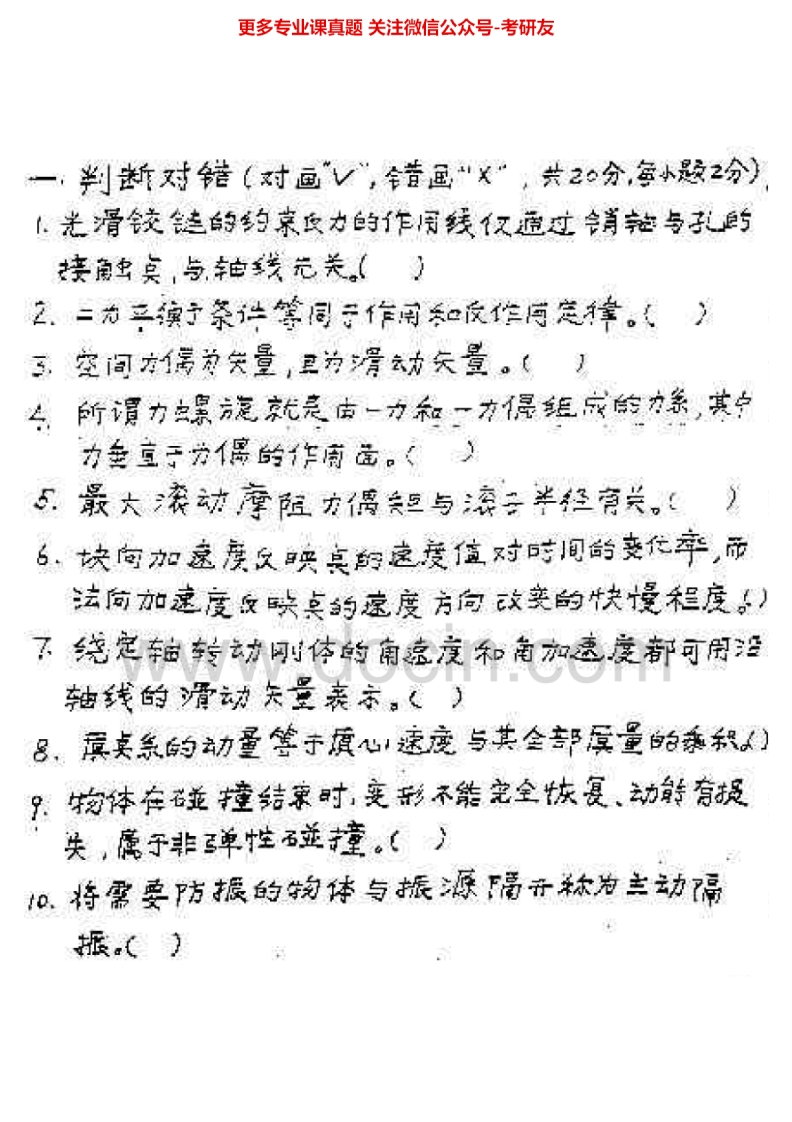 更多专业课真题 关注微信公众号-考研友
一.判断对错(对画"√",错画"×",共20分,每小题2分)
1.光滑铰链的约束反力的作用线仅通过销轴与孔的
接触点,与轴线无关。( )
2.二力平衡条件等同于作用和反作用定律。( )
3.空间力偶为矢量,且为滑动矢量。( )
4.所谓力螺旋就是由一力和一力偶组成的力系,其中
力垂直于力偶的作用面。( )
5.最大滚动摩阻力偶矩与滚子半径有关。( )
6.切向加速度反映点的速度值对时间的变化率,而
法向加速度反映点的速度方向改变的快慢程度。( )
7.绕定轴转动刚体的角速度和角加速度都可用沿
轴线的滑动矢量表示。( )
www.docin.com
8.质点系的动量等于质心速度与其全部质量的乘积。( )
9.物体在碰撞结束时,变形不能完全恢复、动能有损
失,属于非弹性碰撞。( )
10.将需要防振的物体与振源隔开称为主动隔
振。( )